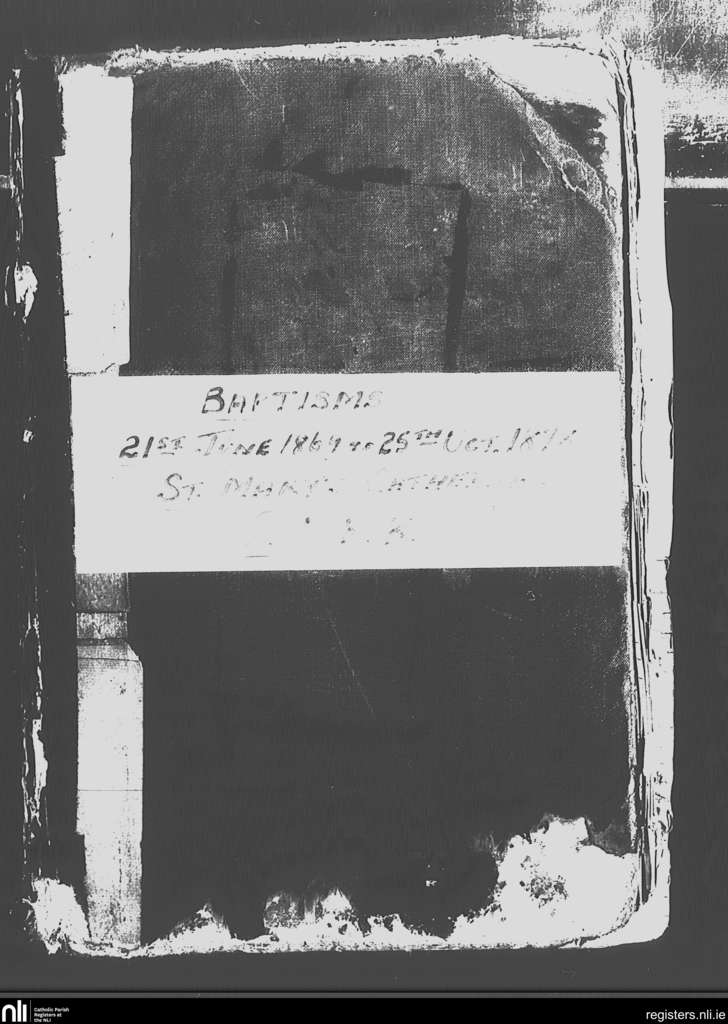 BAPTISMS
21ST JUNE 1869 TO 25TH OCT. 187
ST. MARY'S CATHEDRAL
nli
Catholic Parish
Registers at
the NLI
registers.nli.ie